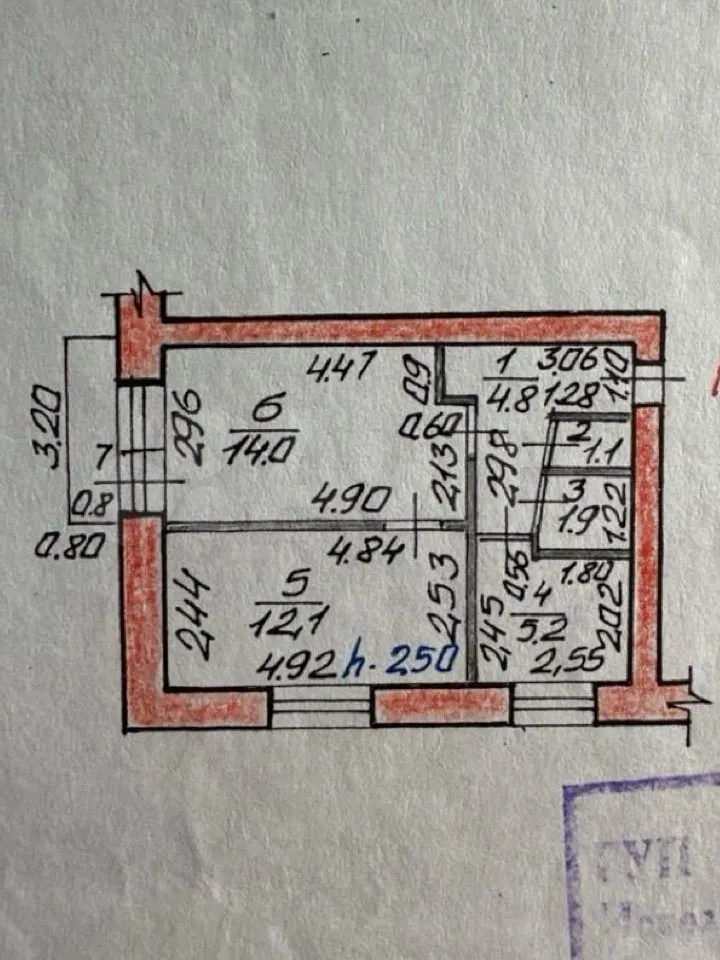 4.47
0.9
1
4.8
3.06
1.28
1.10
3.20
7
0.8
0.80
2.96
6
14.0
4.90
0.60
2.13
2.98
2
1.1
3
1.9
1.22
4.84
2.44
5
12,1
4.92
h. 2.50
2.53
0.56
2.45
4
5.2
1.80
2.02
2,55
ГУП